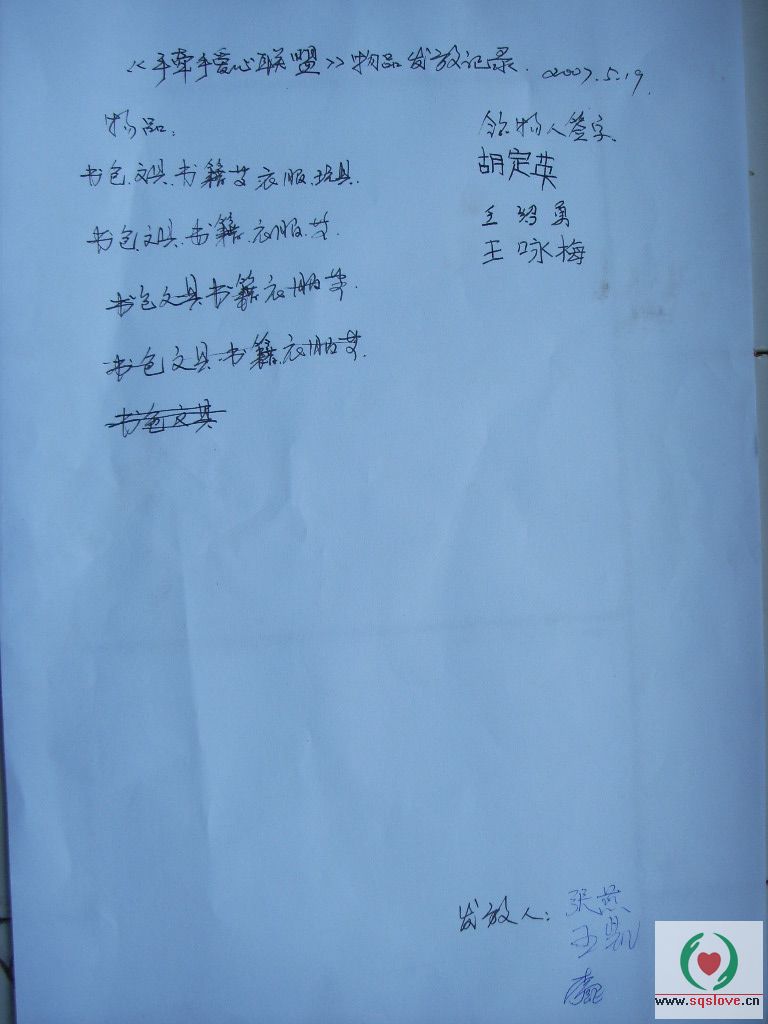 《手牵手爱心联盟》物品发放记录. 2007.5.19.
物品: 领物人签字.
书包.文具.书籍.衣服.玩具. 胡定英
书包.文具.书籍.衣服. 王 勇
王咏梅
书包文具书籍衣服
书包文具书籍.衣服
书包文具
发放人: 张燕
王凯
www.sqslove.cn